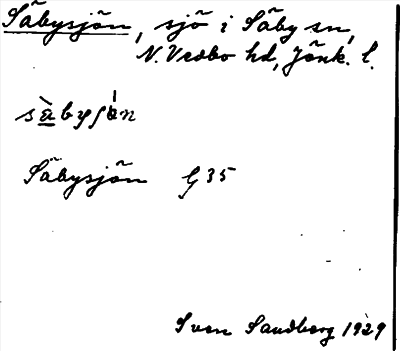 Säbysjön, sjö i Säby sn,
N. Vedbo hd, Jönk. l.
Säbysjön G 35
Sven Sandberg 1929